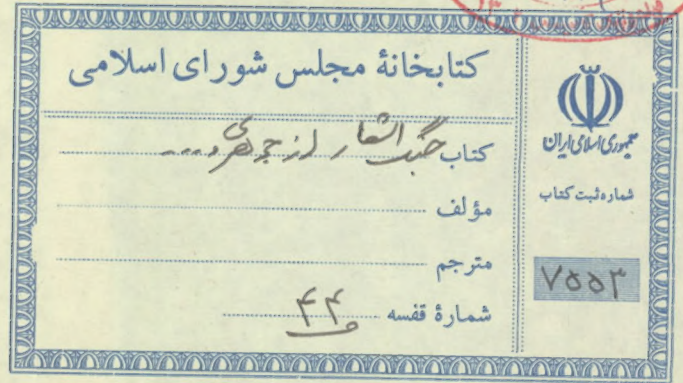 کتابخانهٔ مجلس شورای اسلامی
کتاب جنگ اشعار از جوهری و ...
مؤلف
مترجم
شمارهٔ قفسه ۴۴
جمهوری اسلامی ایران
شماره ثبت کتاب
۷۵۵۳